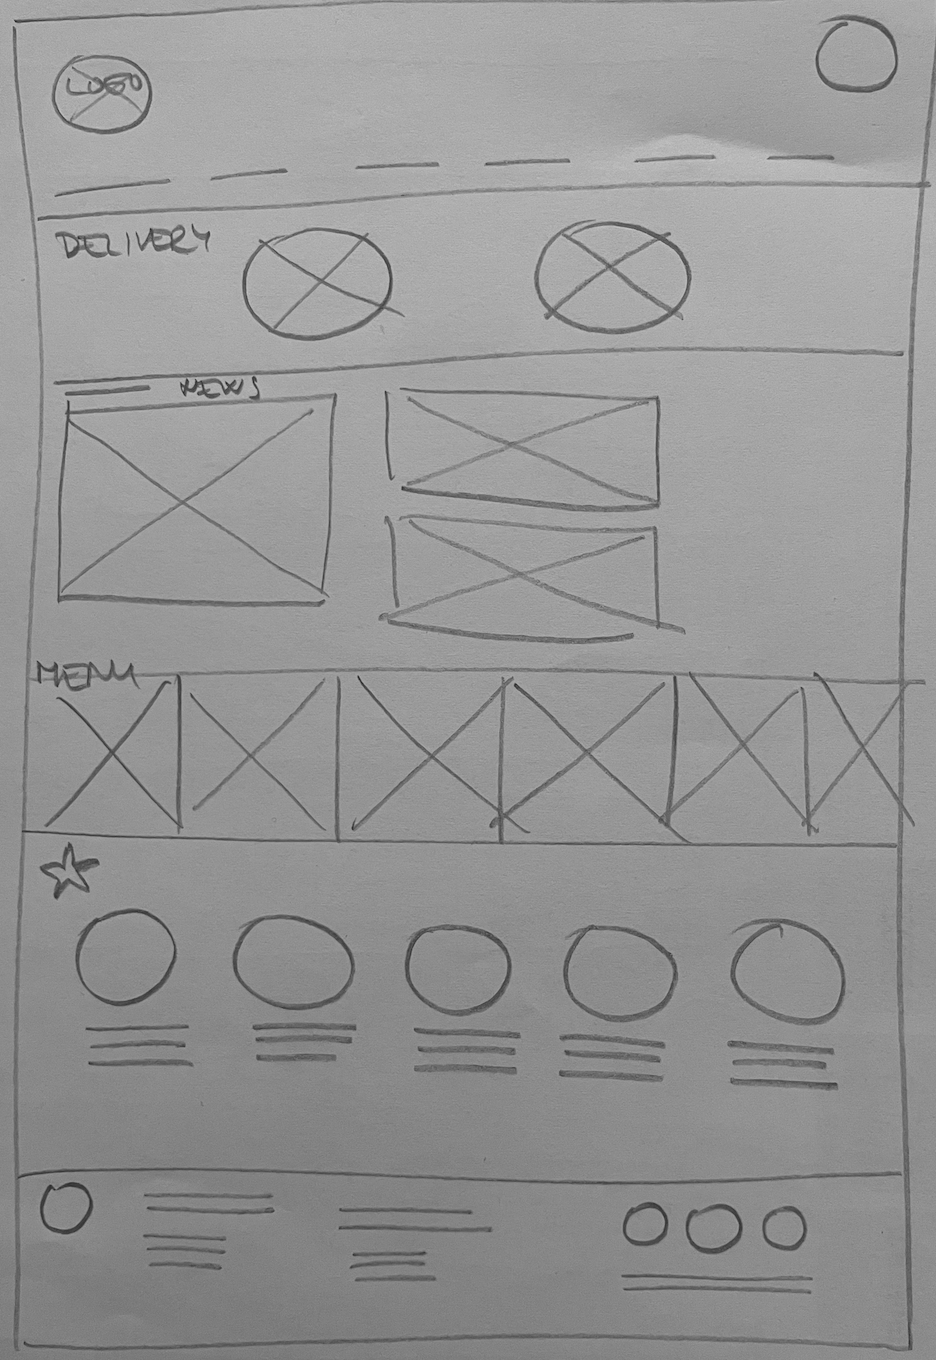 LOGO
DELIVERY
NEWS
MENU